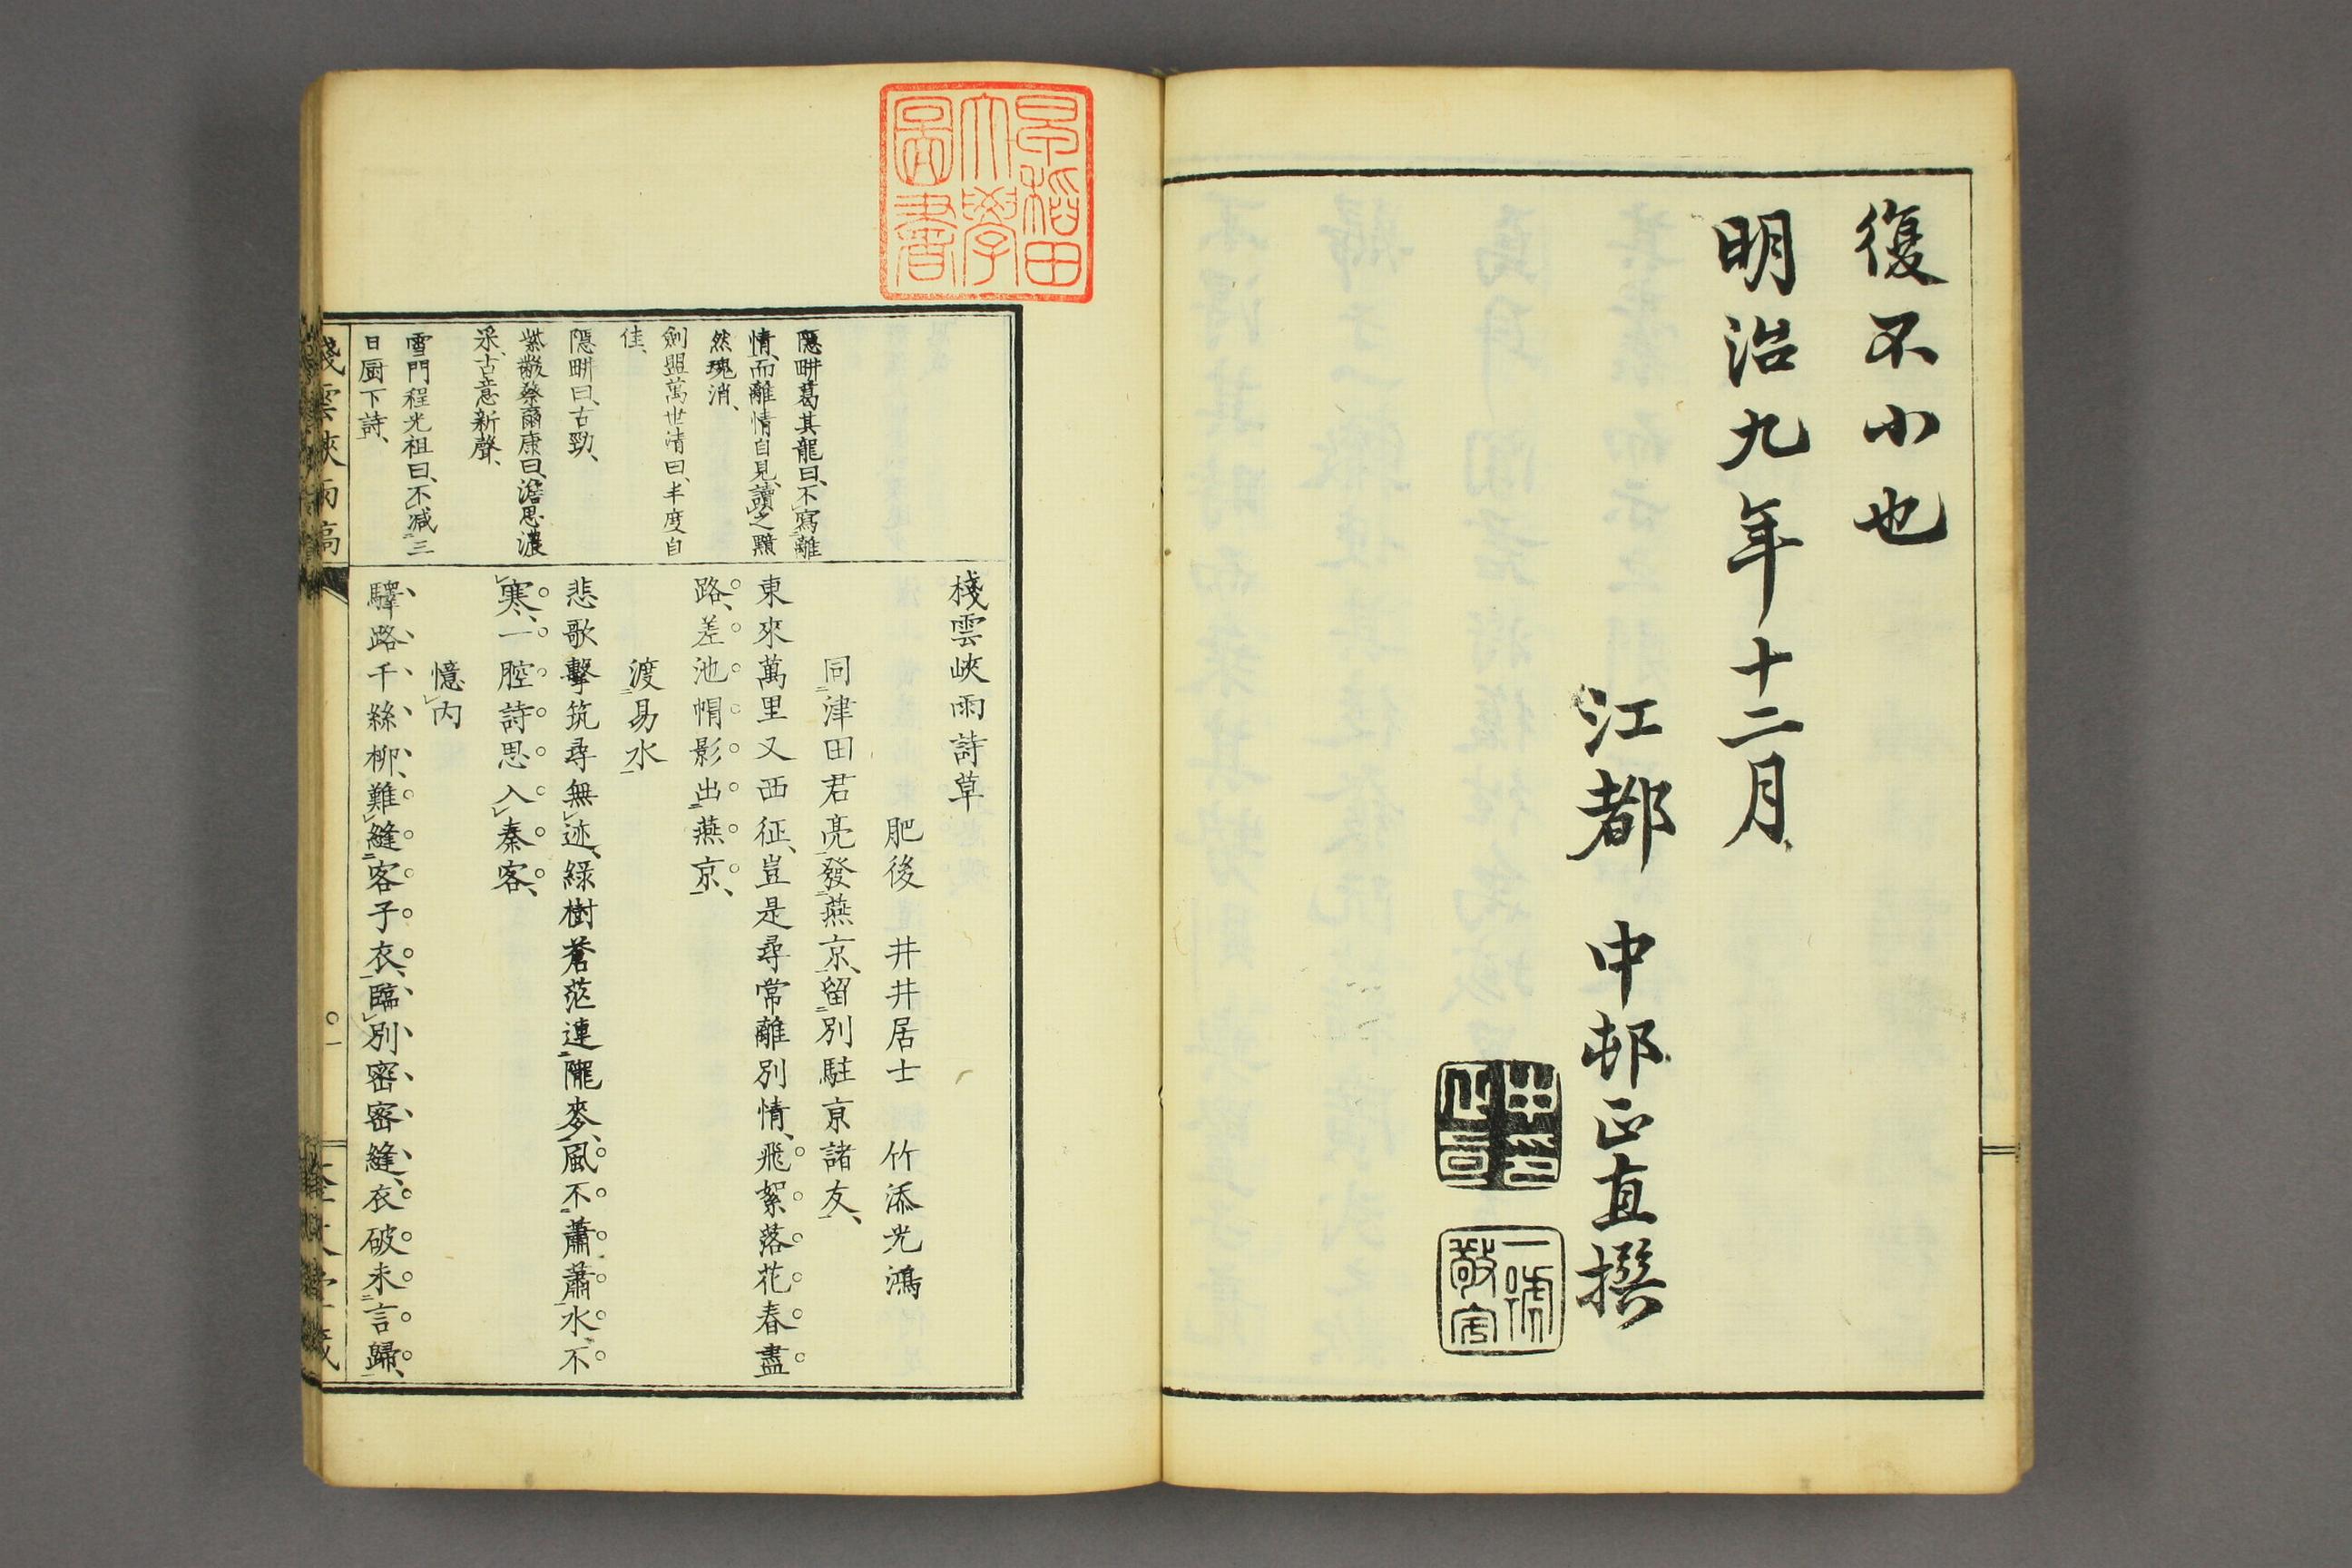 復不小也
明治九年十二月
江都 中邨正直撰
早稲田
大學
圖書
隱畊葛其龍曰、不寫離
情、而離情自見、讀之黯
然魂消、
劍盟萬世清曰、丰度自
佳、
隱畊曰、古勁、
紫黻蔡爾康曰、澹思濃
采、古意新聲、
雪門程光祖曰、不減三
日厨下詩、
棧雲峽雨詩草
肥後 井井居士 竹添光鴻
同津田君亮發燕京、留別駐京諸友、
東來萬里又西征、豈是尋常離別情、飛絮落花春盡
路、差池帽影出燕京、
渡易水
悲歌擊筑尋無迹、綠樹蒼茫連隴麥、風不蕭蕭水不
寒、一腔詩思入秦客、
憶内
驛路千絲柳、難縫客子衣、臨別密密縫、衣破未言歸、
棧雲峽雨稿
一